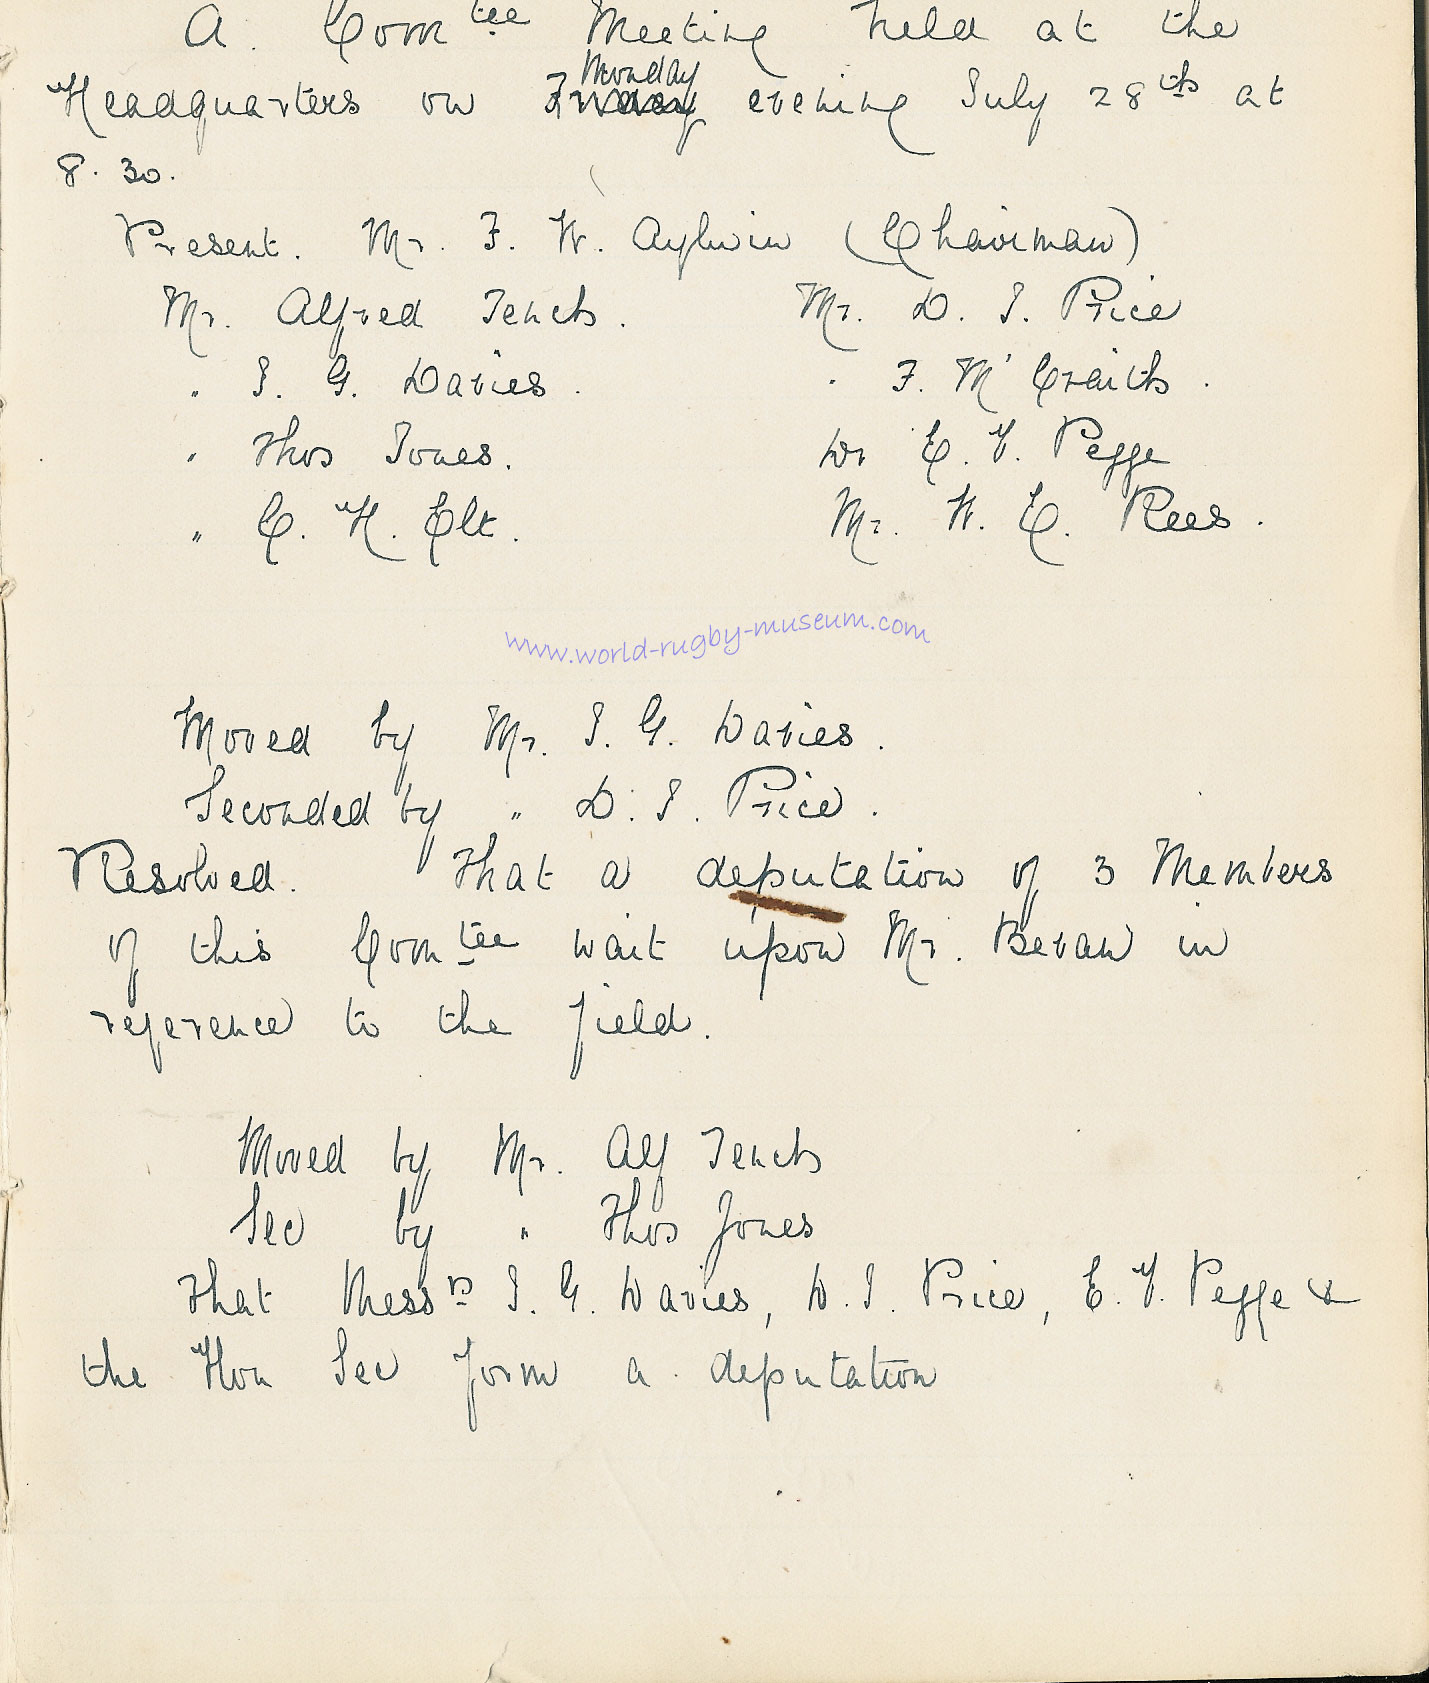 A. Comtee Meeting held at the
Monday
Headquarters on Friday evening July 28th at
8.30.
Present. Mr. F. W. Aylwin (Chairman)
Mr. Alfred Tench. Mr. D. J. Price
" J. G. Davies. " F. M'Craith.
" Thos Jones. Dr E. V. Pegge
" C. H. Elt. Mr. W. E. Rees.
www.world-rugby-museum.com
Moved by Mr. J. G. Davies.
Seconded by " D. J. Price.
Resolved. That a deputation of 3 Members
of this Comtee wait upon Mr. Bevan in
reference to the field.
Moved by Mr. Alf Tench
Sec by " Thos Jones
That Messrs J. G. Davies, D. J. Price, E. V. Pegge &
the Hon Sec form a deputation